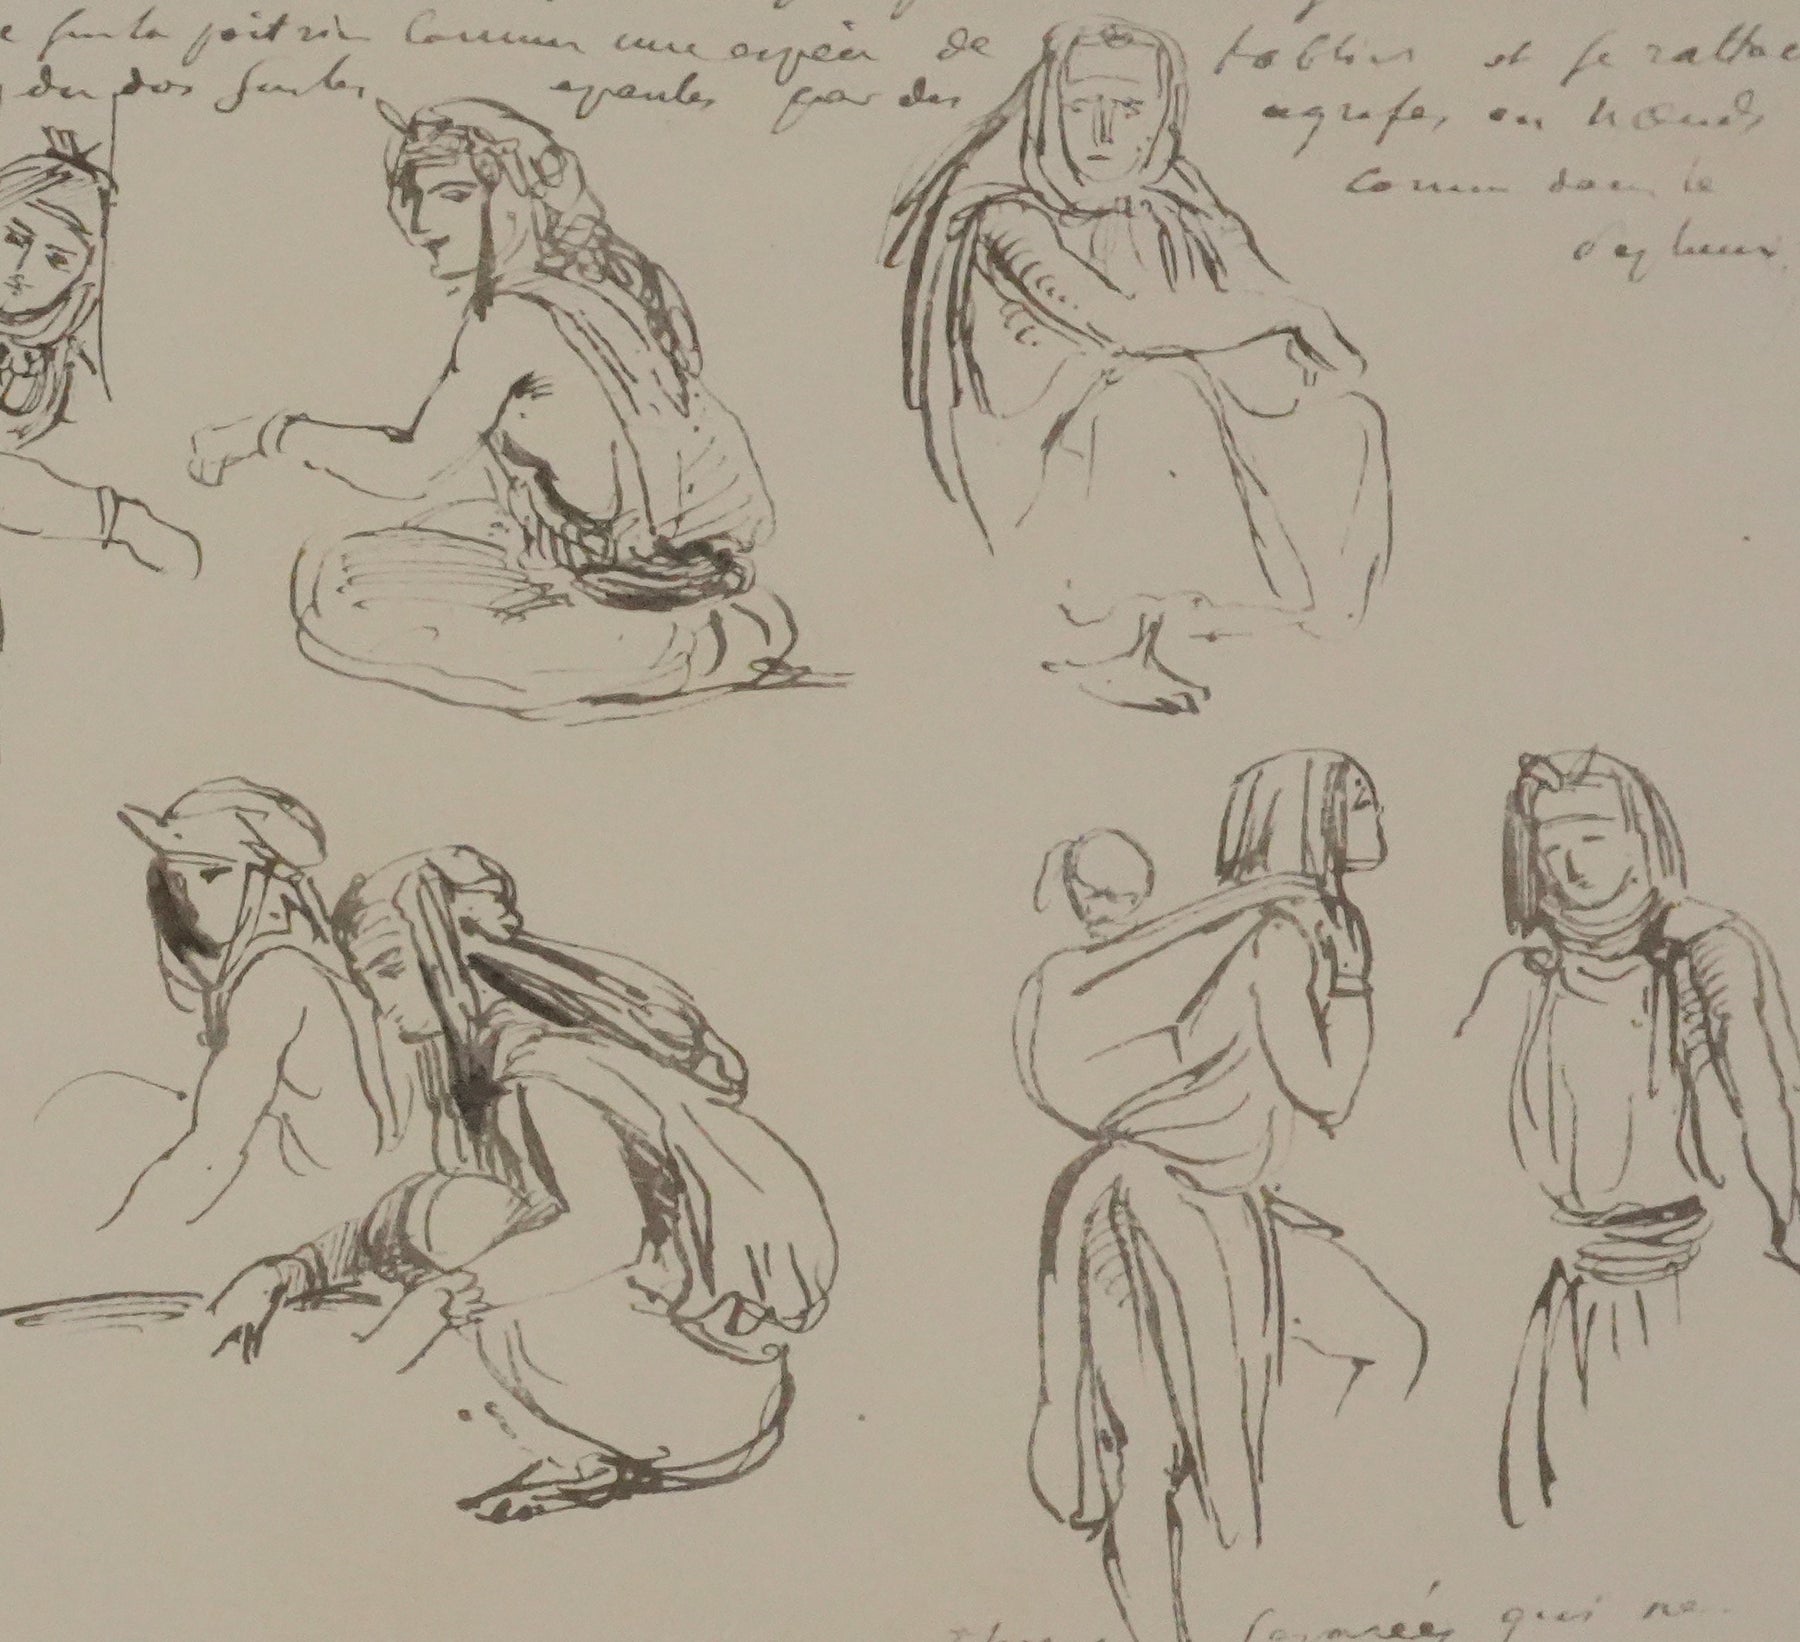 e sur la poitrine comme une espèce de tablier et se rattac
du dos sur les epaules par des agrafes ou nœuds
comme dans le
fermés qui ne